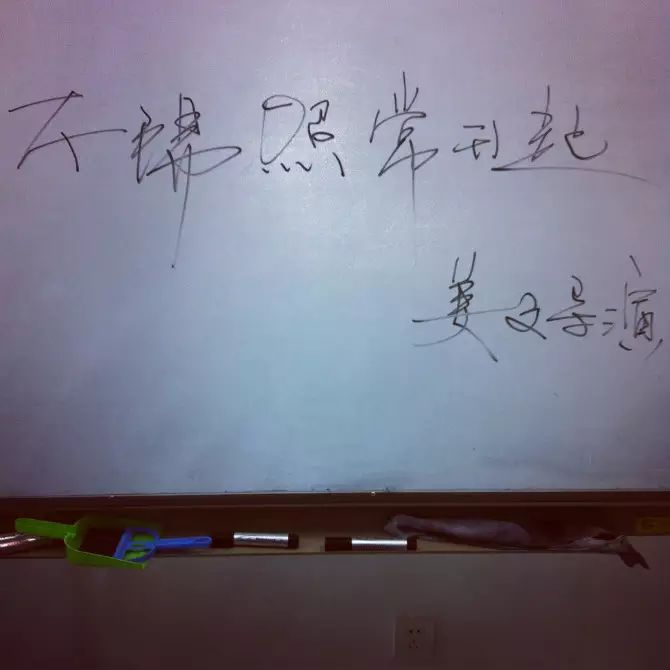 太陽照常升起
姜文导演